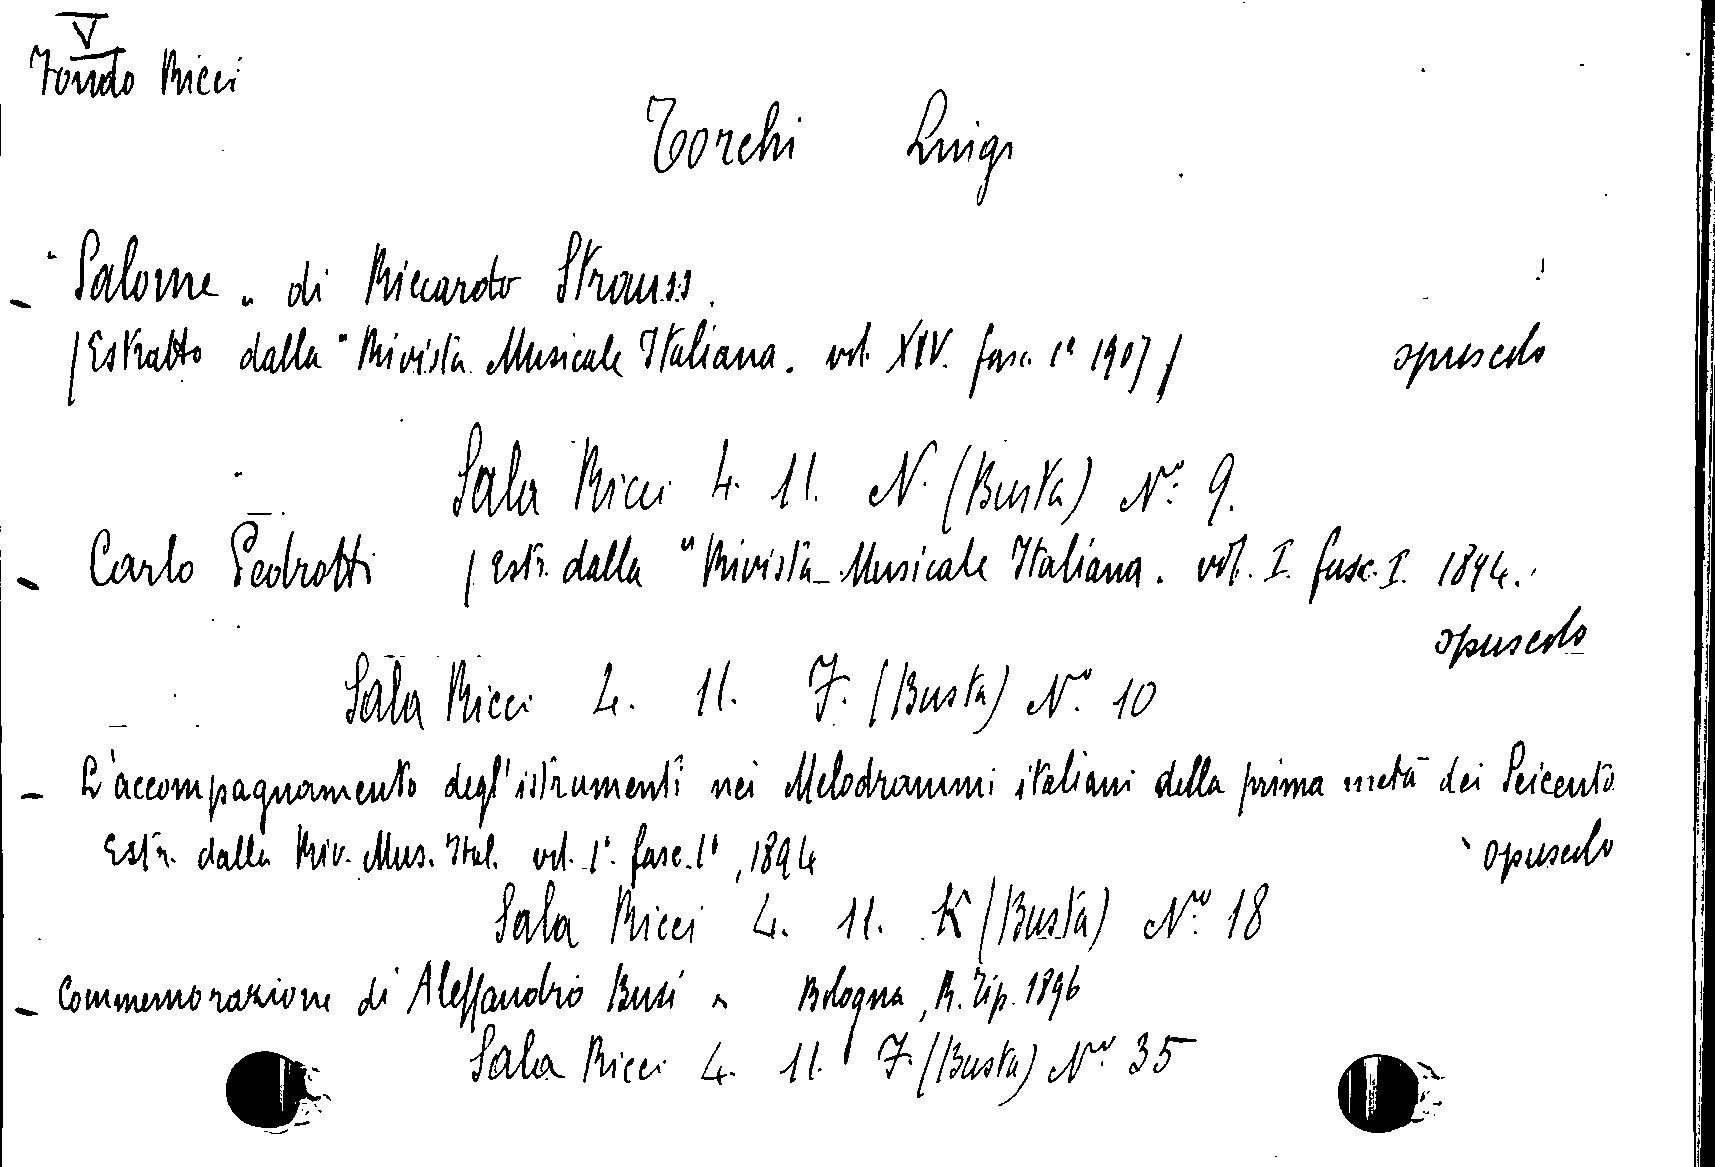 V
Fondo Ricci
Torchi Luigi
- "Salome" di Riccardo Strauss.
/Estratto dalla "Rivista Musicale Italiana. vol. XIV. fasc. 1° 1907/ opuscolo
Sala Ricci 4. 11. N. (Busta) N.° 9.
- Carlo Pedrotti /Estr. dalla "Rivista Musicale Italiana. vol. I. fasc. I. 1894.
opuscolo
Sala Ricci 4. 11. F. (Busta) N.° 10
- L'accompagnamento degl'istrumenti nei Melodrammi italiani della prima metà dei Seicento
Estr. dalla Riv. Mus. Ital. vol. 1°. fasc. 1°, 1894 opuscolo
Sala Ricci 4. 11. K (Busta) N.° 18
- Commemorazione di Alessandro Busi - Bologna, R. Tip. 1896
Sala Ricci 4. 11. F. (Busta) N.° 35